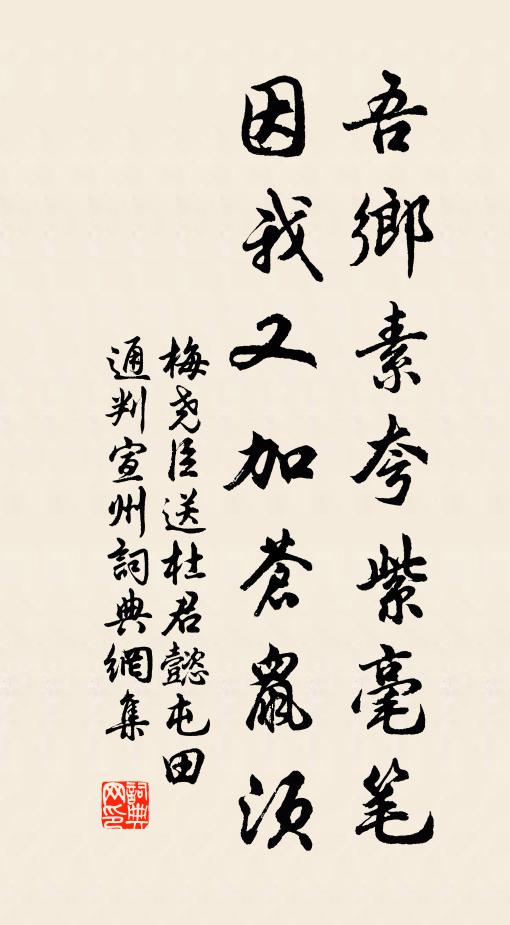 吾鄉素夸紫毫笔
因我又加蒼鼠須
梅堯臣送杜君懿屯田
通判宣州詞典網集
詞典网印